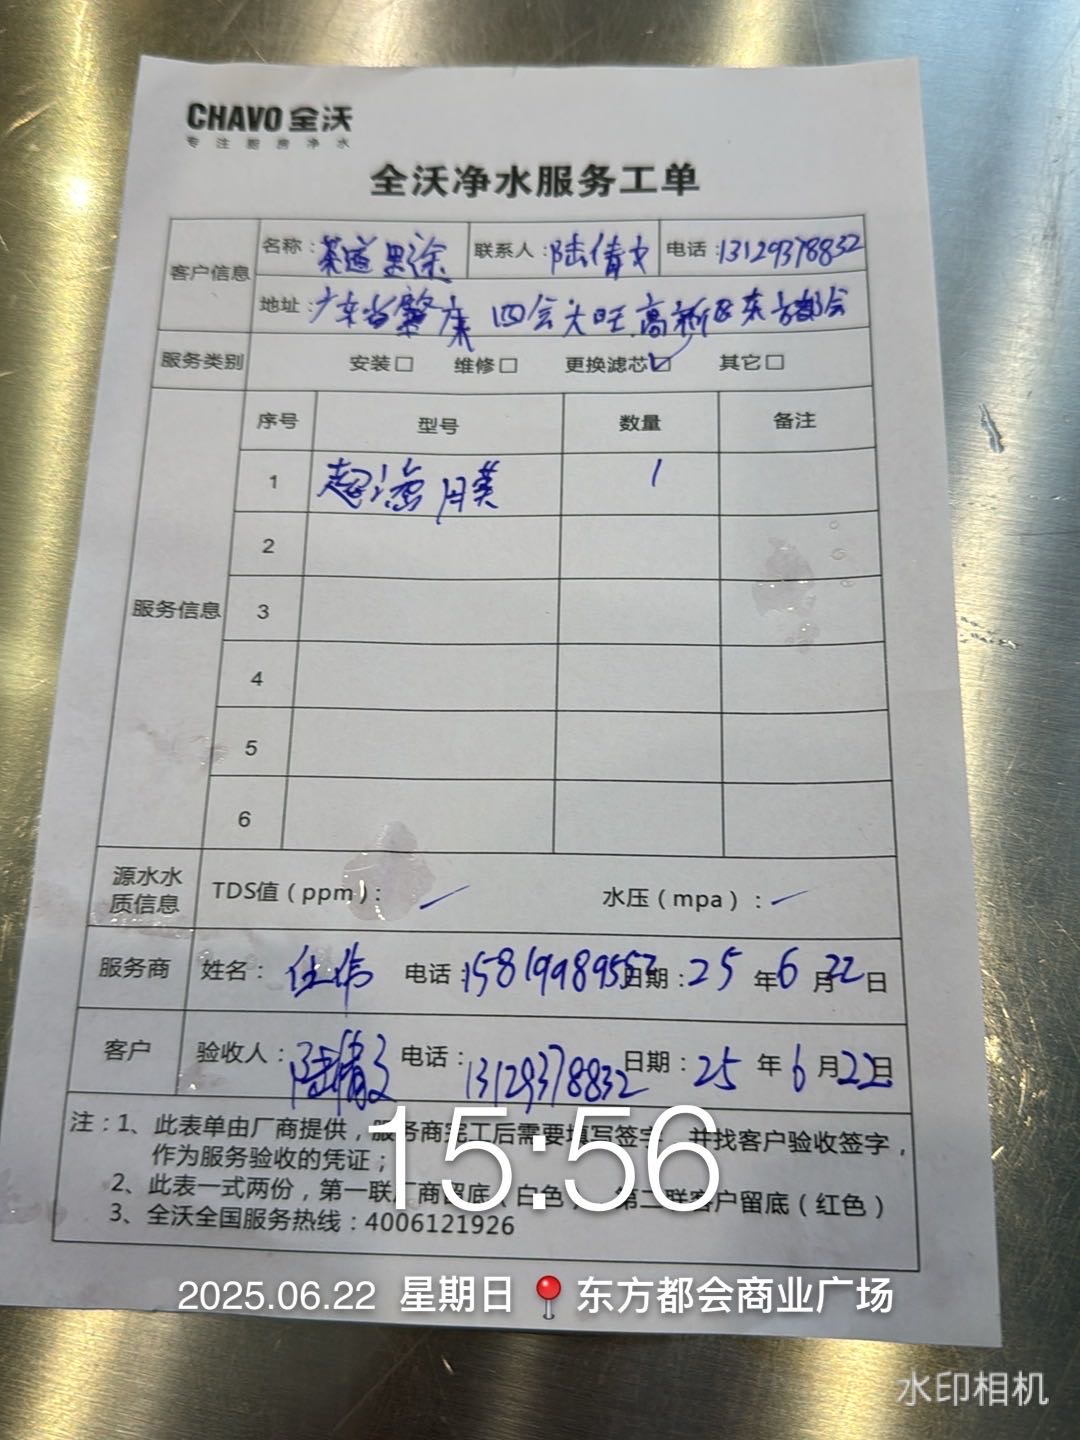 CHAVO 全沃
专注厨房净水
全沃净水服务工单
客户信息 名称：茶道果涂 联系人：陆倩文 电话：13129378832
地址：广东省肇庆 四会大旺高新区东方都会
服务类别 安装□ 维修□ 更换滤芯☑ 其它□
服务信息 序号 型号 数量 备注
1 超滤膜 1
2
3
4
5
6
源水水质信息 TDS值（ppm）： 水压（mpa）：
服务商 姓名：任伟 电话：15819989552 日期：25年6月22日
客户 验收人：陆倩文 电话：13129378832 日期：25年6月22日
注：1、此表单由厂商提供，服务商完工后需要填写签字，并找客户验收签字，
作为服务验收的凭证；
2、此表一式两份，第一联厂商留底（白色），第二联客户留底（红色）
3、全沃全国服务热线：4006121926
15:56
2025.06.22 星期日 东方都会商业广场
水印相机